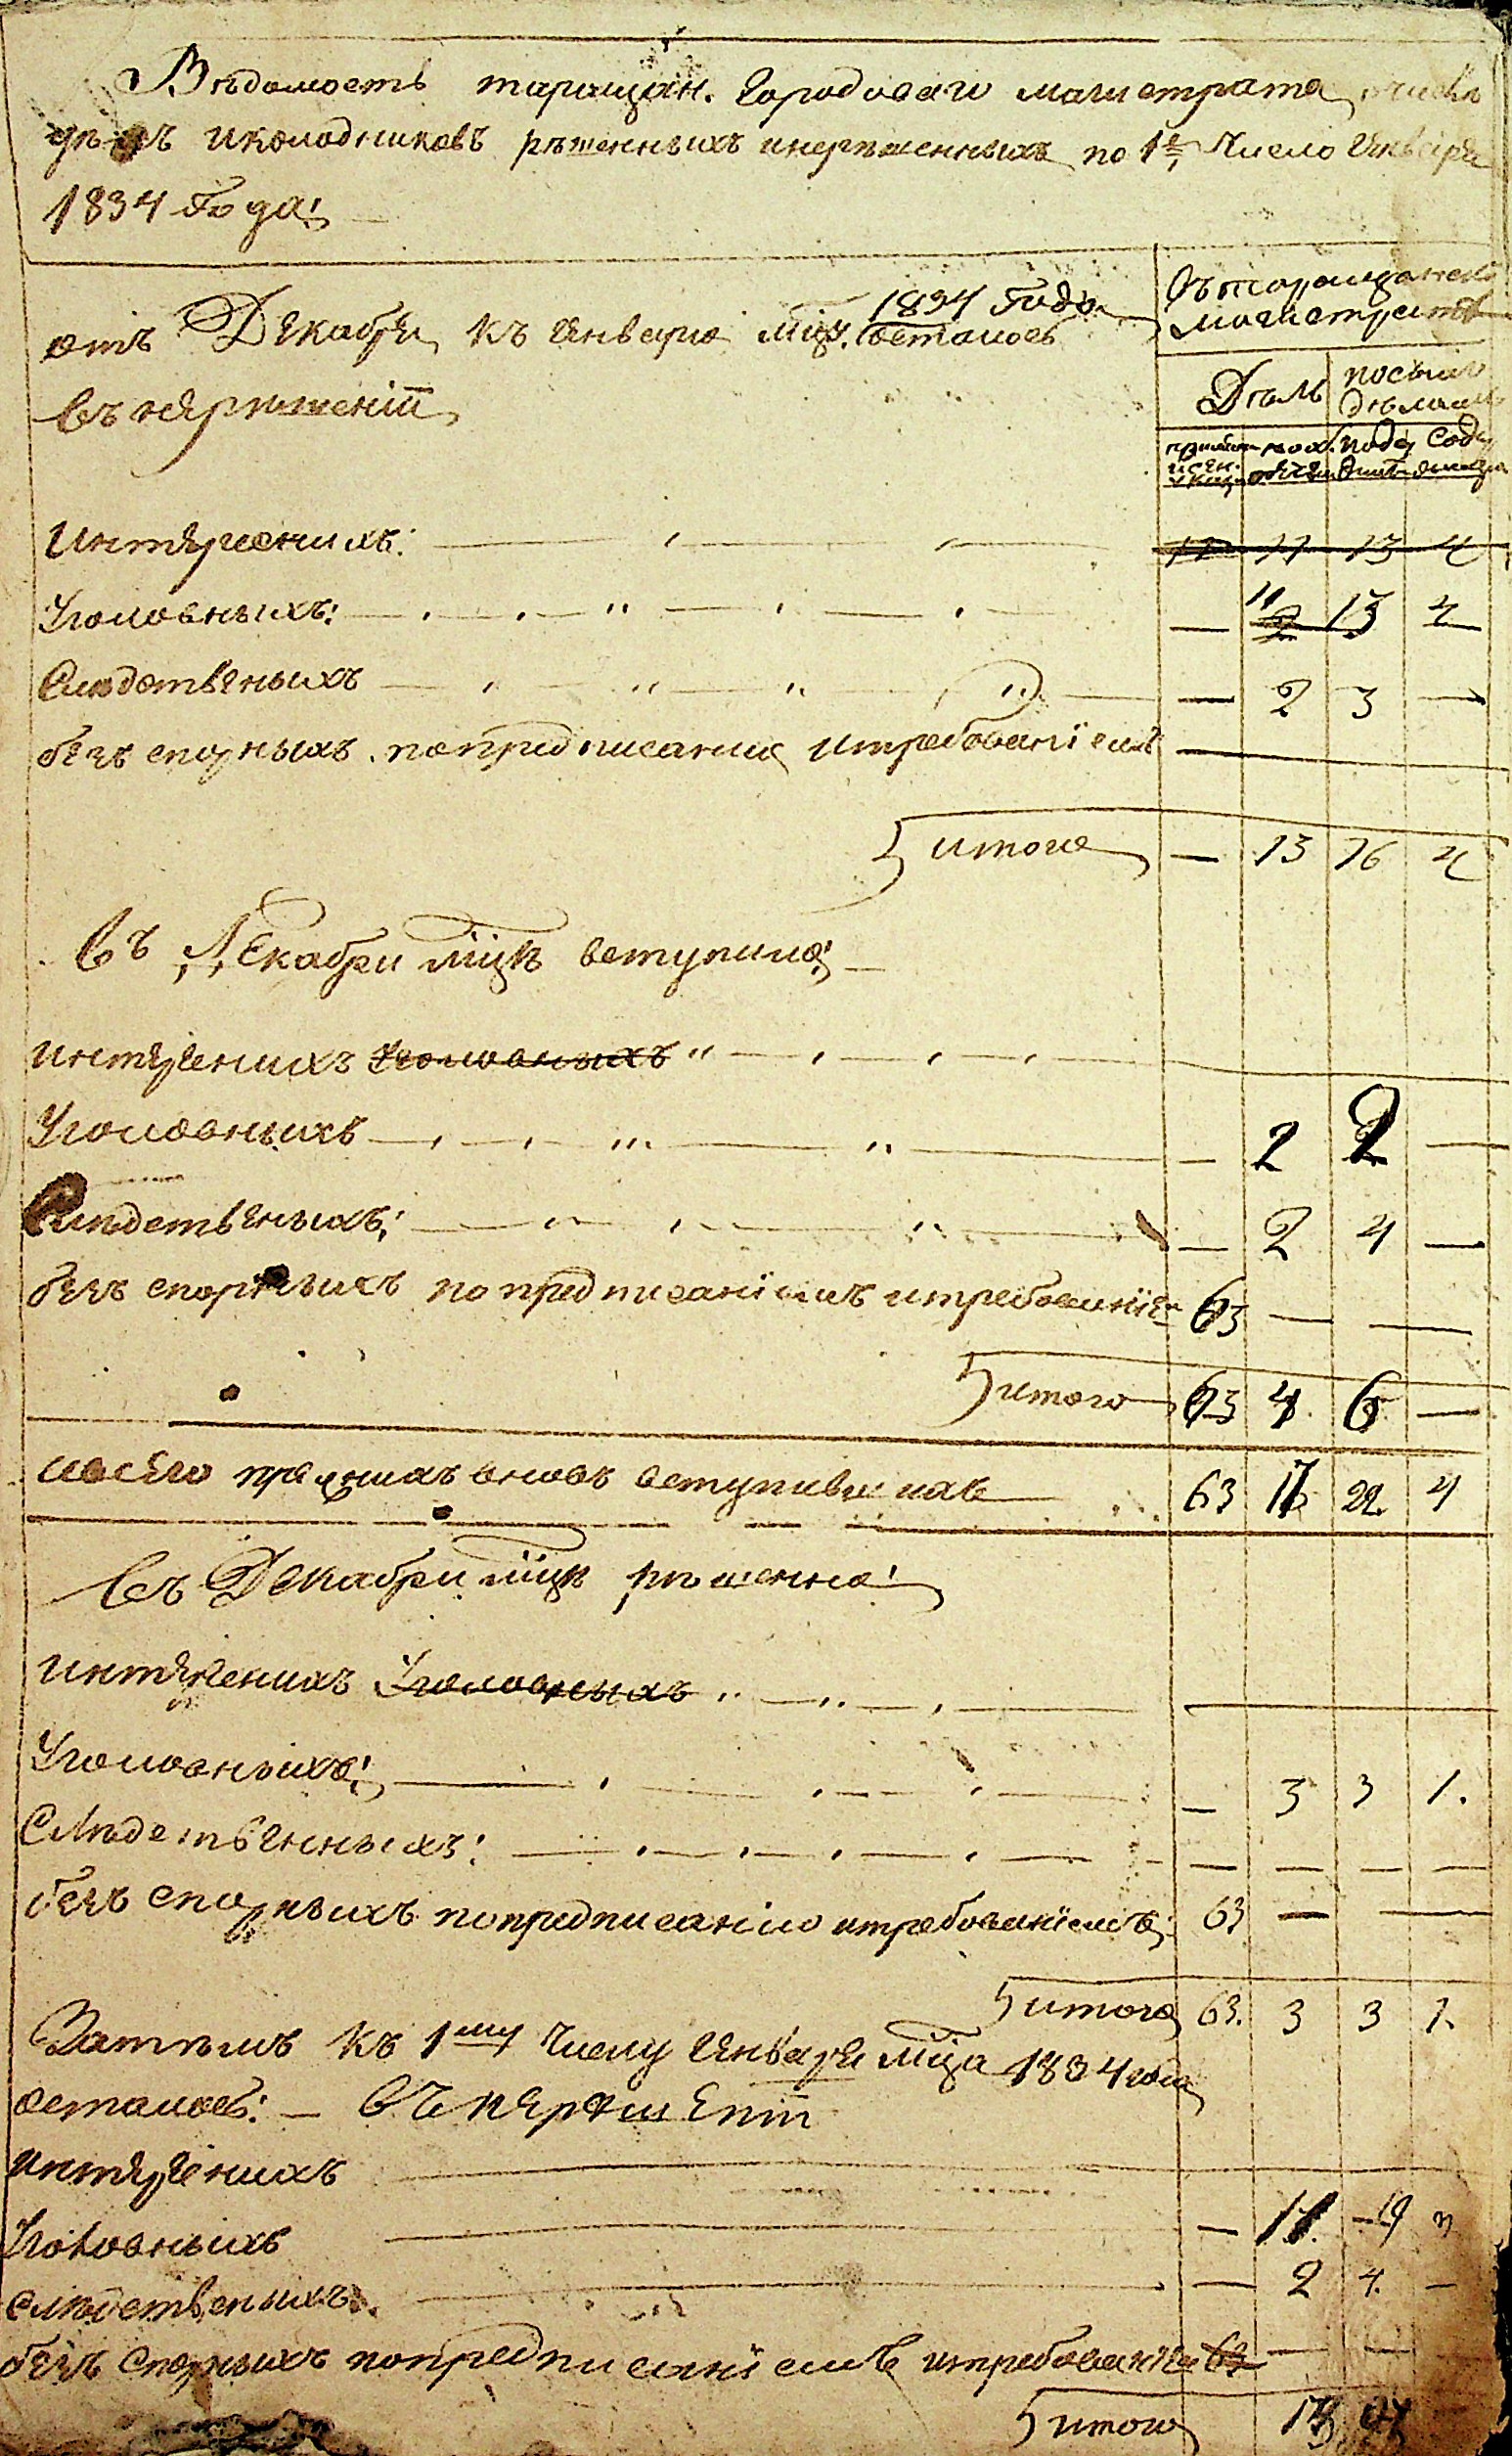 Ведомость таращан. Городоваго магистрата
иколодниковъ решенныхъ инерешенныхъ по 1е Число Генваря
1834 Года;
отъ Декабря къ Генварю мцу. 1834 Года осталось
въ нерешеніи
Въ таращанском
магистрате
Делъ
посимъ
деламъ
Интересныхъ: 11 11 13 4
Уголовныхъ: — 11 13 4
Следственыхъ — 2 3 —
безъ спорныхъ. попредписания итребованіемъ —
итого — 13 16 4
Въ Декабри мце вступило;
интересныхъ уголовныхъ
Уголовныхъ — 2 2 —
Следственыхъ; — 2 4 —
безъ спорныхъ по предписаніямъ итребованіем 63 — —
итого 63 4 6 —
ивсего прежнихъ вновь вступившихъ 63 17 22. 4
Въ Декабри мце решенно;
интересныхъ Уголовныхъ
Уголовныхъ; — 3 3 1.
Следственныхъ: — — — —
безъ спорныхъ попредписанію итребованіемъ; 63 — —
итого 63. 3 3 1.
Затемъ къ 1му Числу Генваря мца 1834 года
осталось: — въ нерешеніи
интересныхъ
Уголовныхъ — 11. 3
Следственыхъ. — 2 4. —
безъ спорныхъ попредписаніемъ итребованіем 63 — —
итого 13